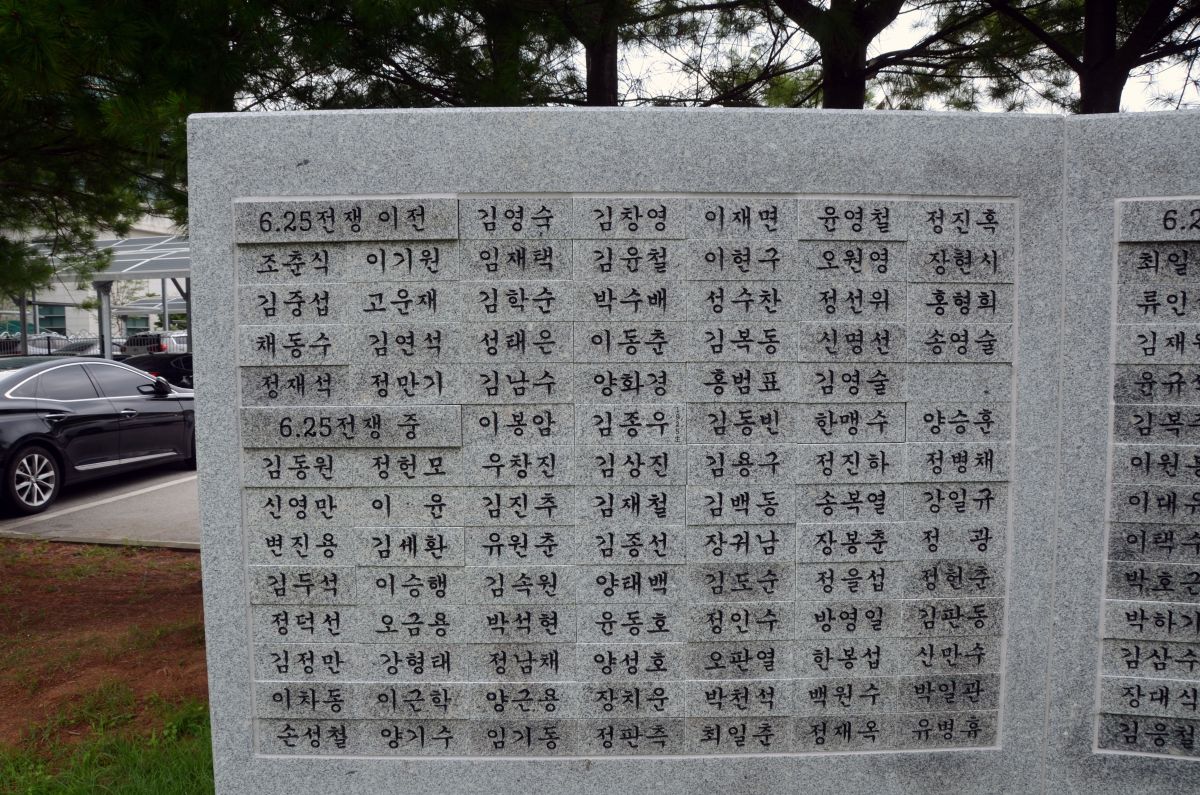 6.25전쟁 이전 김영숙 김창영 이재면 윤영철 정진혹
조춘식 이기원 임재택 김윤철 이현구 오원영 장현시
김중섭 고운재 김학순 박수배 성수찬 정선위 홍형희
채동수 김연석 성태은 이동춘 김복동 신명선 송영술
정재석 정만기 김남수 양화경 홍범표 김영술
6.25전쟁 중 이봉암 김종우 김동빈 한맹수 양승훈
김동원 정헌모 우창진 김상진 김용구 정진하 정병채
신영만 이 윤 김진추 김재철 김백동 송복열 강일규
변진용 김세환 유원춘 김종선 장귀남 장봉춘 정 광
김두석 이승행 김속원 양태백 김도순 정을섭 정헌춘
정덕선 오금용 박석현 윤동호 정인수 방영일 김판동
김정만 강형태 정남채 양성호 오판열 한봉섭 신만수
이차동 이근학 양근용 장치운 박천석 백원수 박일관
손성철 양기수 임기동 정판측 최일춘 정재옥 유명휴
최일
류인
김재
윤규
김복
이원
이대
이택
박호
박하
김삼
장대
김응